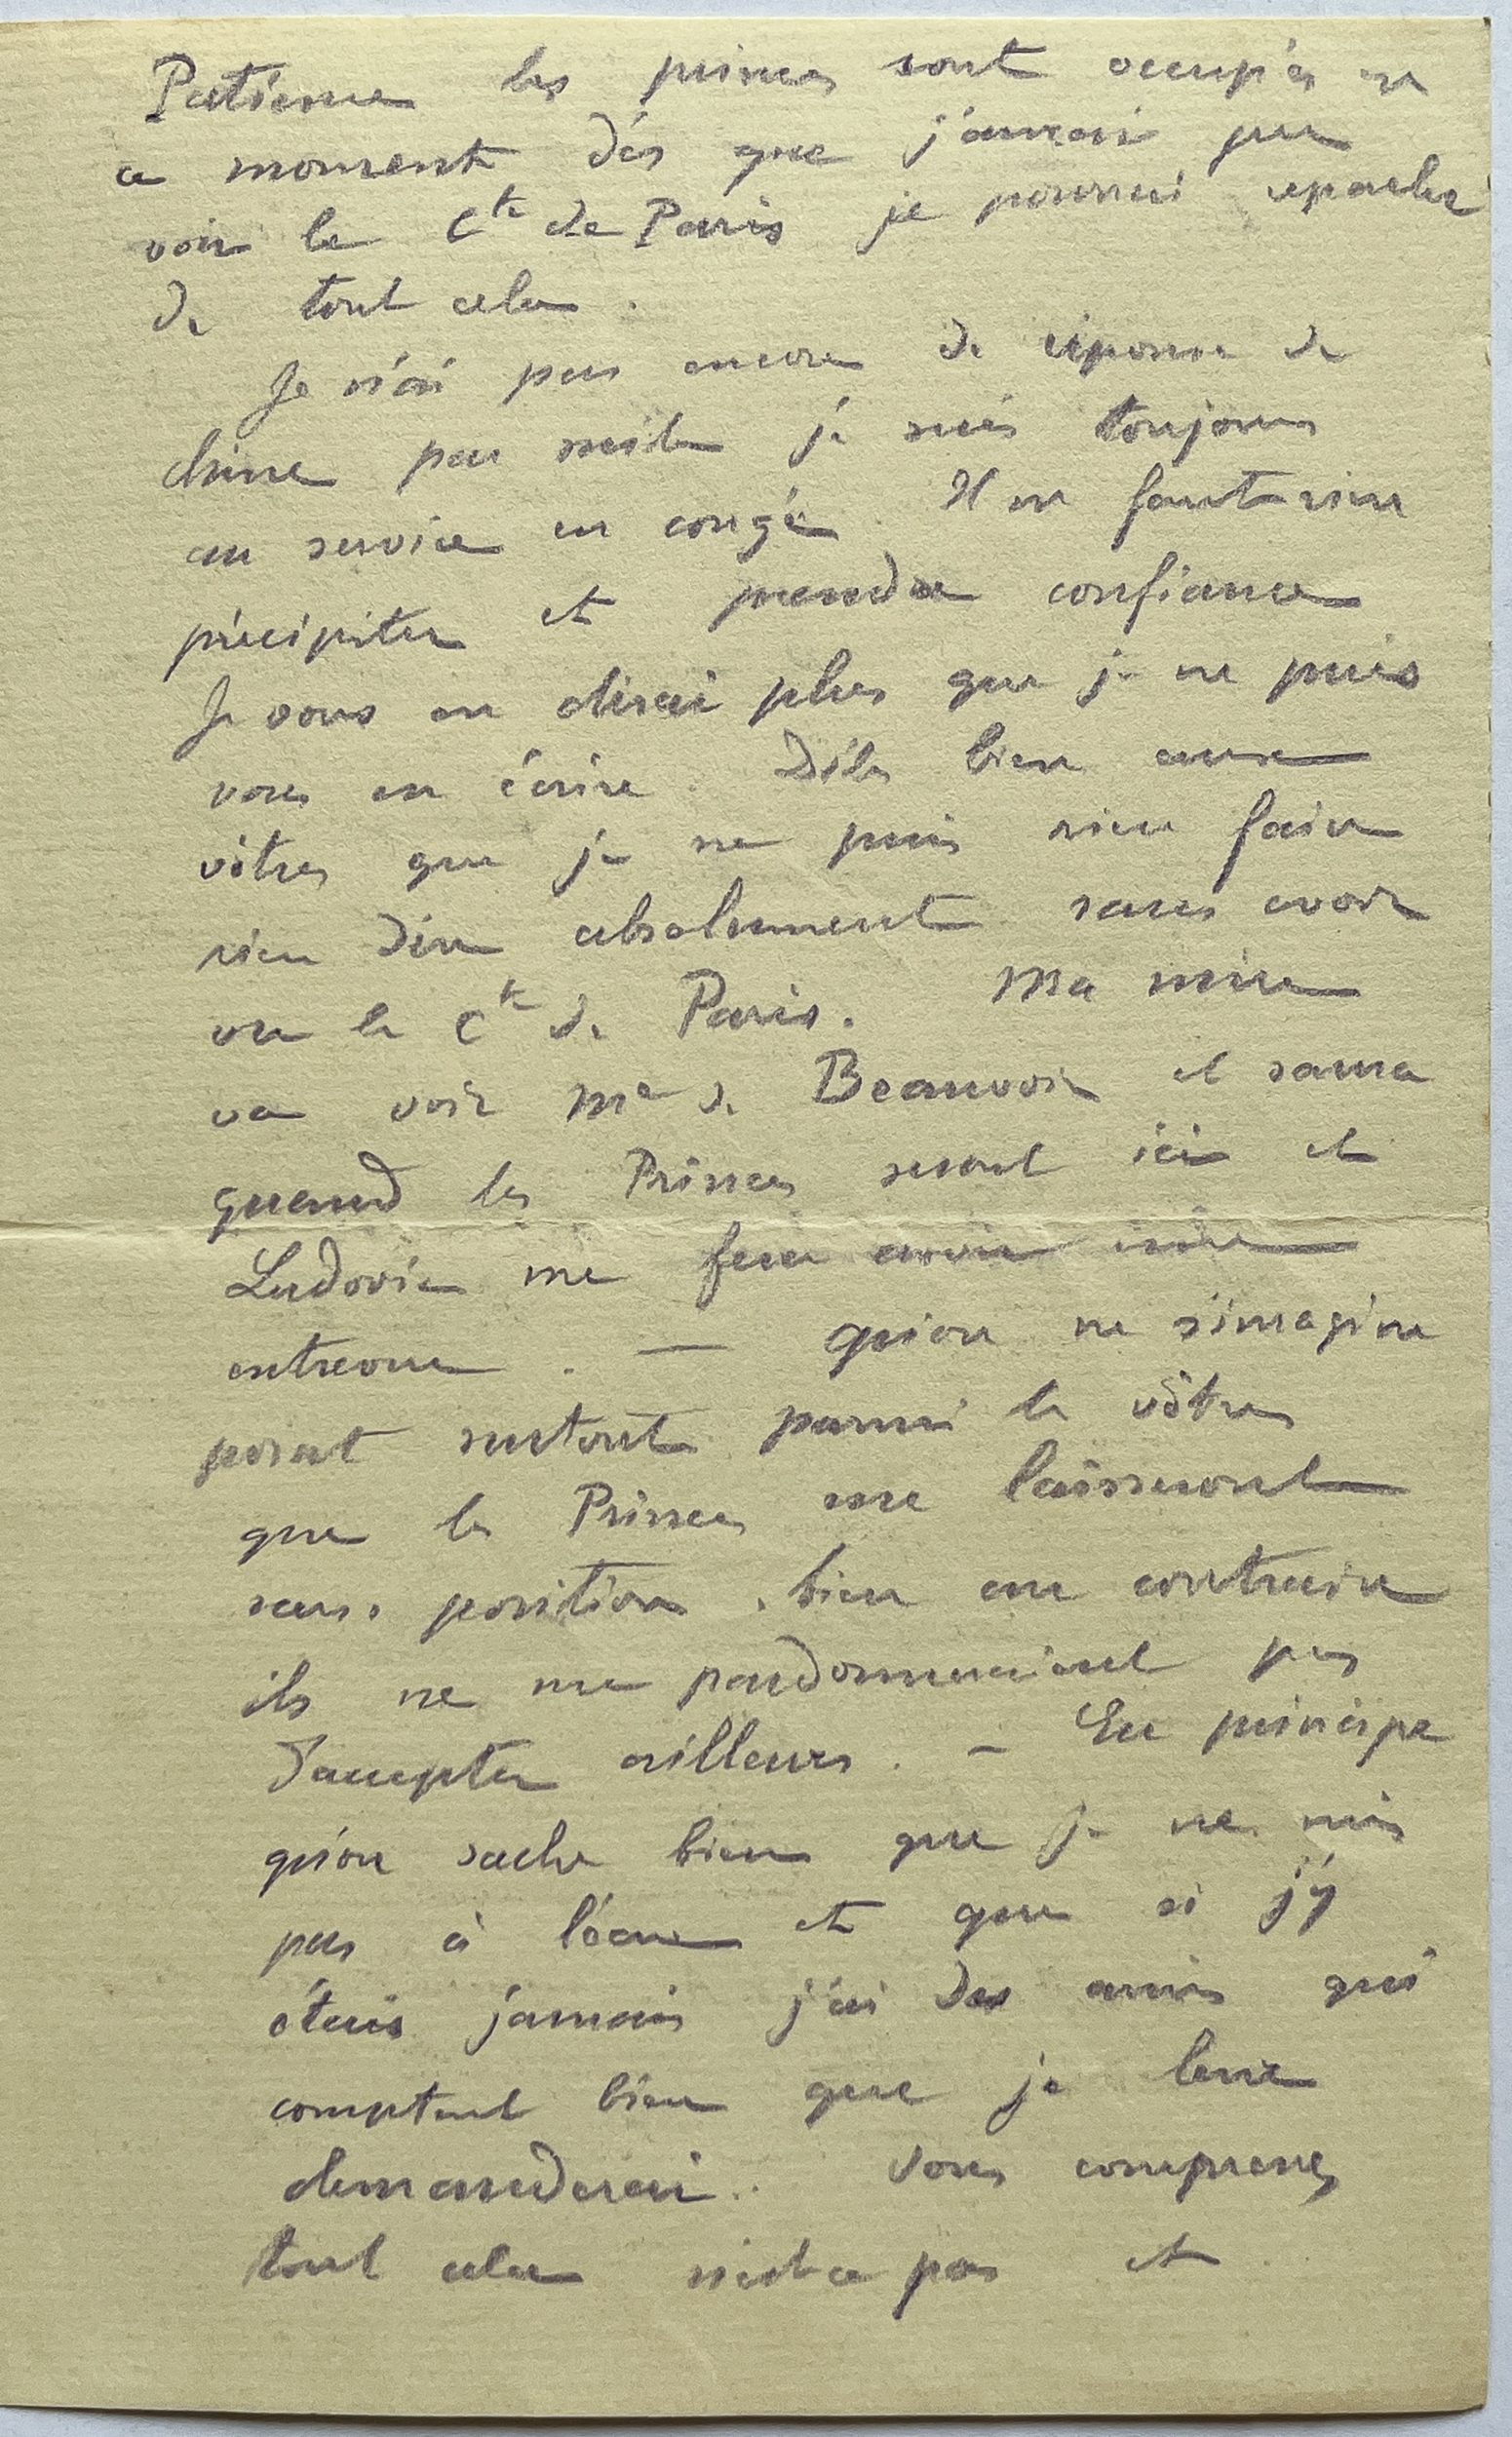 Patience les princes sont occupés en
ce moment dès que j'aurai pu
voir le Cte de Paris je pourrai reparler
de tout cela.
Je n'ai pas encore de réponse de
Chine par suite je suis toujours
au service en congé. Il ne faut rien
précipiter et prendre confiance
Je vous en dirai plus que je ne puis
vous en écrire. Dites bien aux
vôtres que je ne puis rien faire
rien dire absolument sans avoir
vu le Cte de Paris. Ma mère
va voir Me de Beauvoir et saura
quand les Princes seront ici et
Ludovic me fera avoir une
entrevue. — qu'on ne s'imagine
point surtout parmi les vôtres
que les Princes me laisseront
sans position. bien au contraire
ils ne me pardonneraient pas
d'accepter ailleurs. – En principe
qu'on sache bien que je ne suis
pas à l'écart et que si j'y
étais jamais j'ai des amis qui
comptent bien que je leur
demanderai. Vous comprenez
tout cela n'est ce pas et